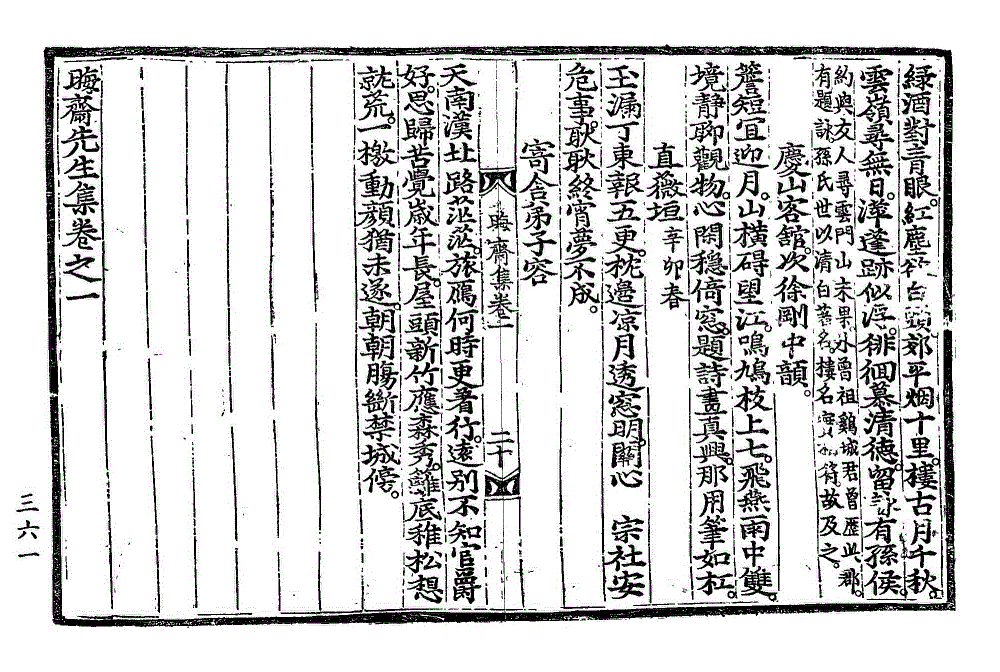 綠酒對靑眼。紅塵欲白頭。郊平烟十里。樓古月千秋。
雲嶺尋無日。萍逢跡似浮。徘徊慕淸德。留詠有孫侯。
約與友人尋雲門山未果外曾祖鷄城君曾歷此郡。
有題詠孫氏世以淸白著名。樓名 故及之。
慶山客舘。次徐剛中韻。
簷短宜迎月。山橫碍望江。鳴鳩枝上七。飛燕雨中雙。
境靜聊觀物。心閑穩倚窓。題詩盡眞興。那用筆如杠。
直薇垣 辛卯春
玉漏丁東報五更。枕邊凉月透窓明。關心 宗社安
危事。耿耿終宵夢不成。
寄舍弟子容
晦齋集卷一 二十
天南漢北路茫茫。旅鴈何時更著行。遠別不知官爵
好。思歸苦覺歲年長。屋頭新竹應森秀。籬底稚松想
就荒。一檄動顔猶未遂。朝朝膓斷禁城傍。
晦齋先生集卷之一
三六一